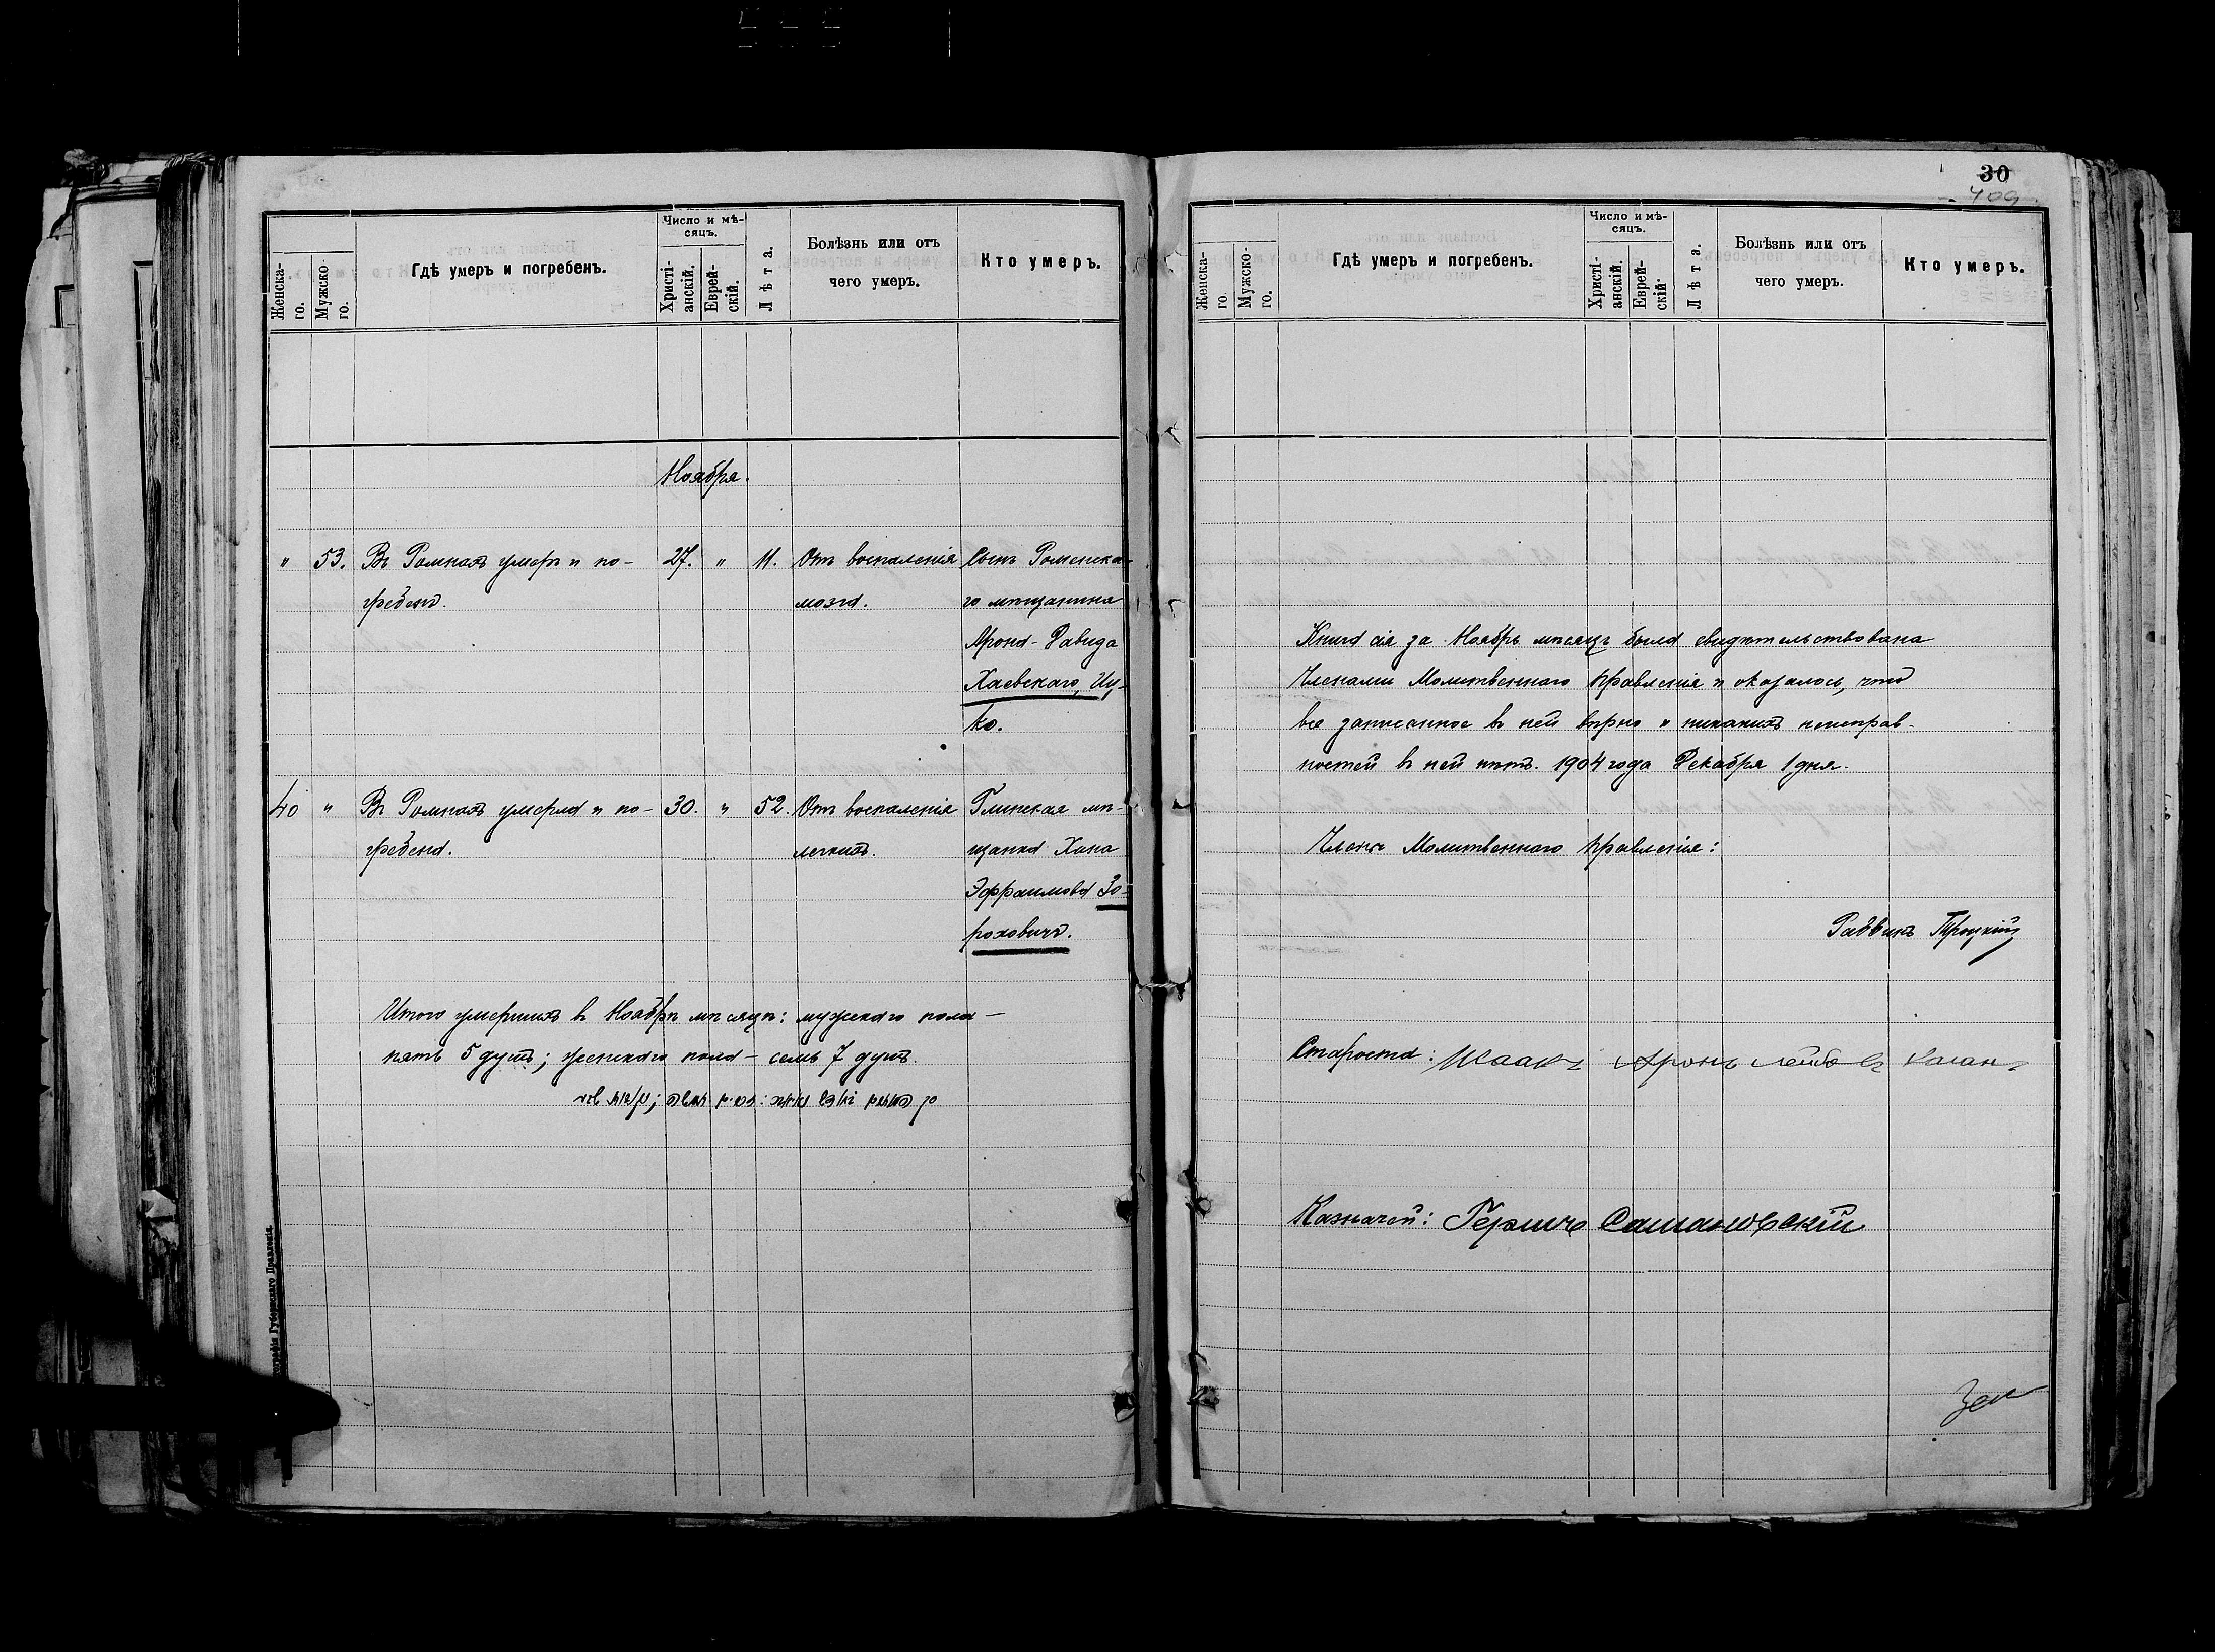 Женска-
го.
Мужско-
го.
Гдѣ умеръ и погребенъ.
Число и мѣ-
сяцъ.
Христі-
анскій.
Еврей-
скій.
Лѣта.
Болѣзнь или отъ
чего умеръ.
Кто умеръ.
Ноября.
" 53. Въ Ромнахъ умеръ и по- 27. " 11. Отъ воспаленія Сынъ Роменска-
гребенъ. мозга. го мѣщанина
Арона-Давида
Хаевскаго, Иц-
ко.
40 " Въ Ромнахъ умерла и по- 30. " 52. Отъ воспаленія Глинская мѣ-
гребена. легкихъ. щанка Хана
Эфраимова Зо-
роховичъ.
Итого умершихъ въ Ноябрѣ мѣсяцѣ: мужскаго пола —
пять 5 душъ; женскаго пола — семь 7 душъ.
ографія Губернскаго Правленія.
30
409
Женска-
го.
Мужско-
го.
Гдѣ умеръ и погребенъ.
Число и мѣ-
сяцъ.
Христі-
анскій.
Еврей-
скій.
Лѣта.
Болѣзнь или отъ
чего умеръ.
Кто умеръ.
Книга сія за Ноябрь мѣсяцъ была свидѣтельствована
Членами Молитвеннаго Правленія и оказалось, что
все записанное въ ней вѣрно и никакихъ неисправ-
ностей въ ней нѣтъ. 1904 года Декабря 1 дня.
Члены Молитвеннаго Правленія:
Раввинъ Троцкій
Староста: Исаакъ Аронъ Лейбовъ Каганъ
Казначей: Гершъ Сашановскій